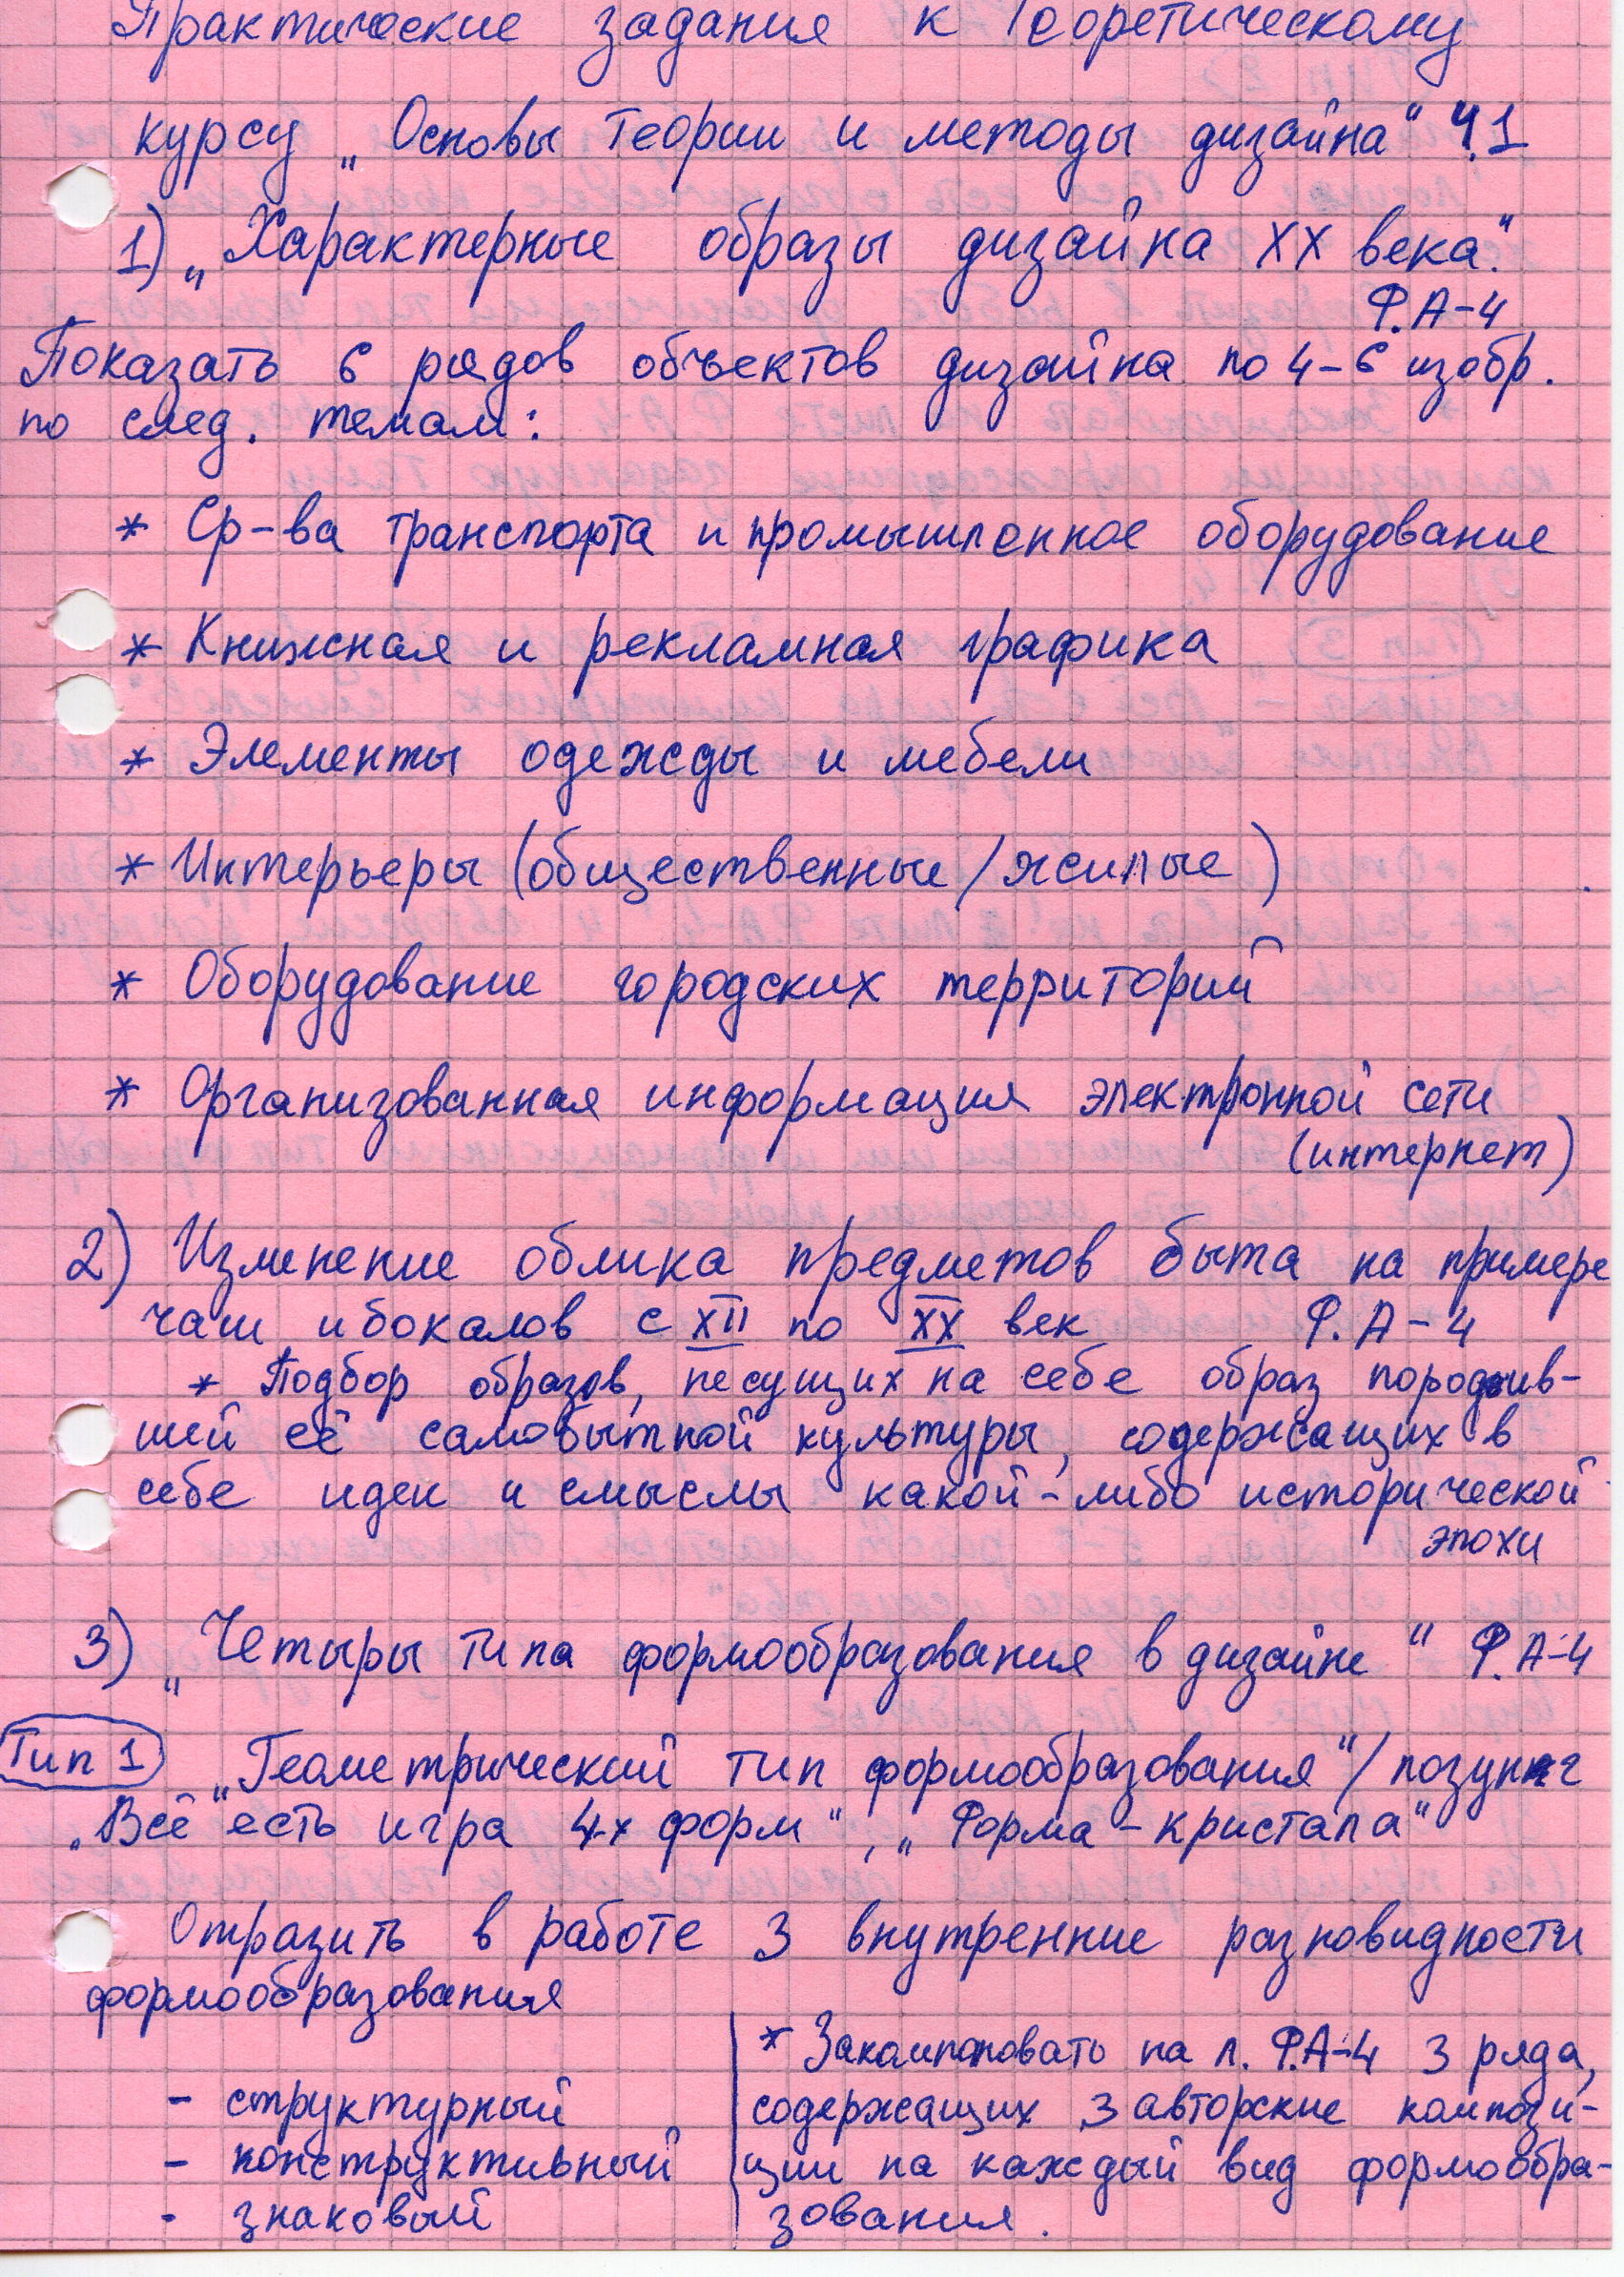 Практические задания к Теоретическому
курсу „Основы Теории и методы дизайна“ Ч.1
1) „Характерные образы дизайна XX века.“
Ф.А-4
Показать 6 рядов объектов дизайна по 4-6 изобр.
по след. темам:
* Ср-ва транспорта и промышленное оборудование
* Книжная и рекламная графика
* Элементы одежды и мебели
* Интерьеры (общественные / жилые)
* Оборудование городских территорий
* Организованная информация электронной сети
(интернет)
2) Изменение облика предметов быта на примере
чаш и бокалов с XII по XX век Ф.А-4
* Подбор образов, несущих на себе образ породив-
шей её самобытной культуры, содержащих в
себе идеи и смыслы какой-либо исторической
эпохи
3) „Четыры типа формообразования в дизайне“ Ф.А-4
Тип 1 „Геометрический тип формообразования“ / лозунг
„Всё есть игра 4х форм“, „Форма-кристала“
Отразить в работе 3 внутренние разновидности
формообразования
- структурный
- конструктивный
- знаковый
* Закомпоновать на л. Ф.А-4 3 ряда,
содержащих 3 авторские компози-
ции на каждый вид формообра-
зования.